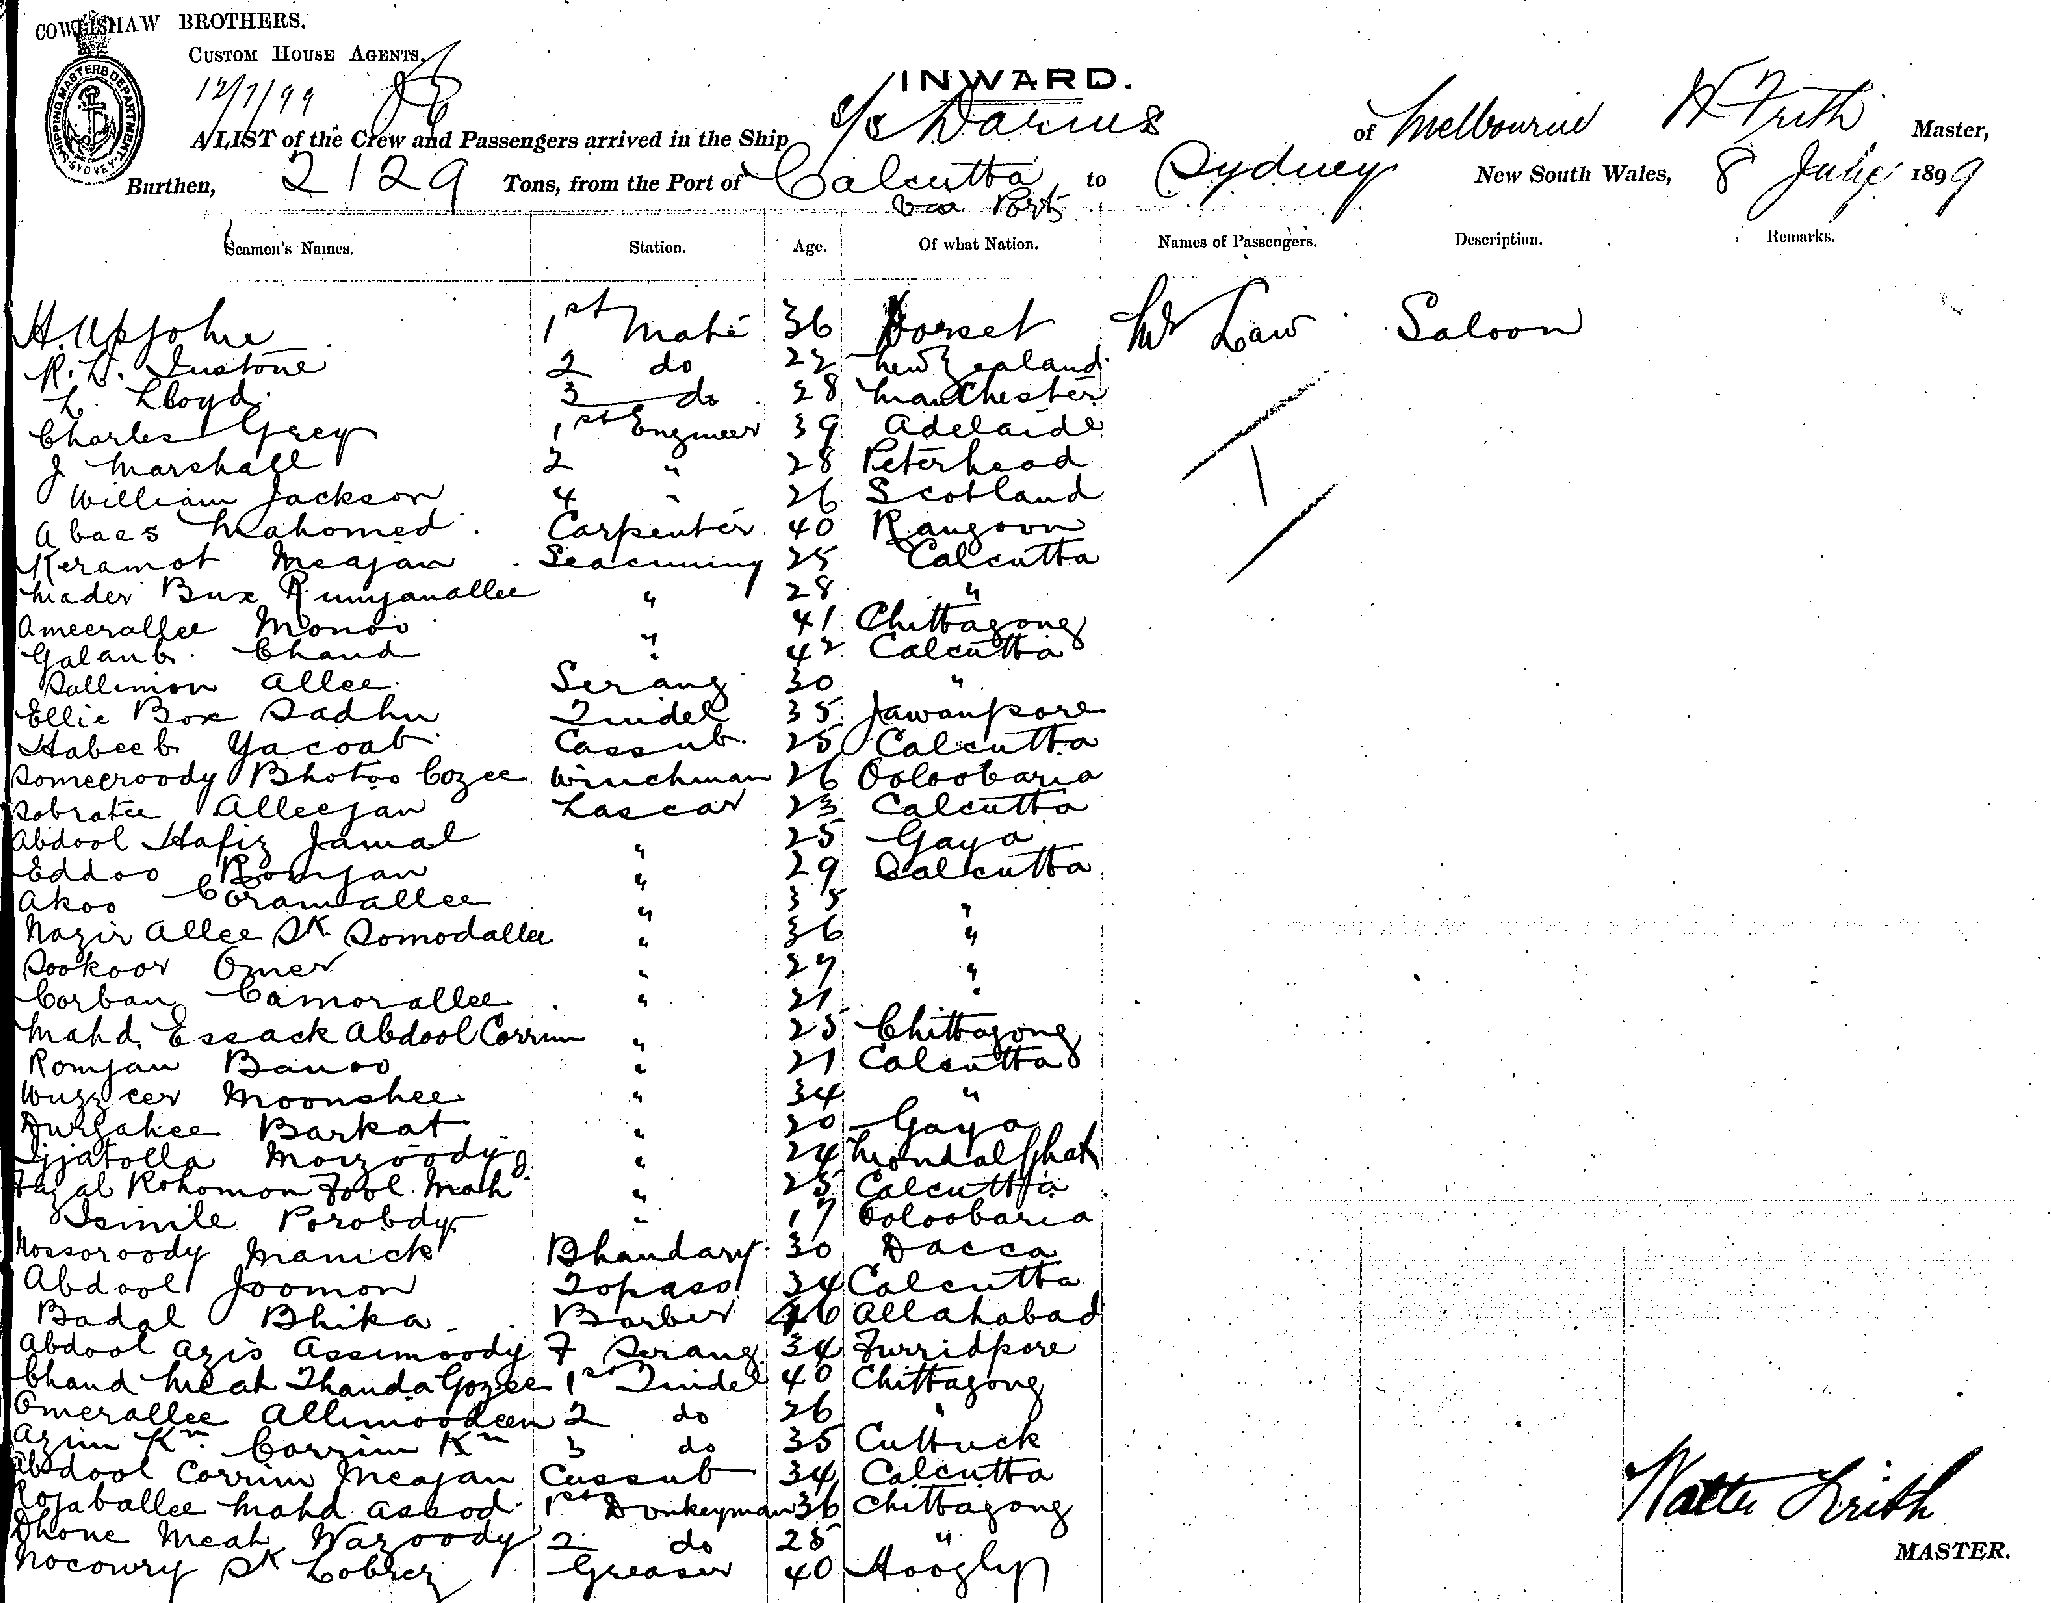 COWLISHAW BROTHERS.
CUSTOM HOUSE AGENTS.
SHIPPING MASTERS DEPARTMENT SYDNEY
12/7/99
INWARD.
A LIST of the Crew and Passengers arrived in the Ship s/s Darius of Melbourne W Frith Master,
Burthen, 2129 Tons, from the Port of Calcutta to Sydney New South Wales, 8 July 1899
via Ports
Seamen's Names. Station. Age. Of what Nation. Names of Passengers. Description. Remarks.
H. Upjohn 1st Mate 36 Dorset Mr Law Saloon
R. L. Iustone 2 do 22 New Zealand
L. Lloyd 3 do 28 Manchester
Charles Grey 1st Engineer 39 Adelaide
J Marshall 2 " 28 Peterhead
William Jackson 4 " 26 Scotland
Abaes Mahomed Carpenter 40 Rangoon
Keramot Meajan Seacunny 25 Calcutta
Mader Bux Rumjanallee " 28 "
Ameerallee Monoo " 41 Chittagong
Golaub Chand " 42 Calcutta
Sollimon Allee Serang 30 "
Ellie Box Sadhu Tindel 35 Jawanpore
Habeeb Yacoob Cassub 25 Calcutta
Someeroody Bhotoo Cozee Winchman 26 Ooloobaria
Sobratee Alleejan Lascar 23 Calcutta
Abdool Hafiz Jamal " 25 Gaya
Eddoo Romjan " 29 Calcutta
Akoo Coramallee " 35 "
Nazir Allee Sk Somodallee " 36 "
Sookoor Omer " 27 "
Corban Camorallee " 21 "
Mahd Essack Abdool Corrim " 25 Chittagong
Romjan Banoo " 21 Calcutta
Wuzzeer Moonshee " 34 "
Durgahee Barkat " 20 Gaya
Ijjatolla Moizoody " 24 Mondalghat
Fazal Rohomon Fozl Mah " 25 Calcutta
Ismile Porobdy " 17 Ooloobaria
Nossoroody Manick Bhandary 30 Dacca
Abdool Joomon Topass 34 Calcutta
Badal Bhika Barber 46 Allahabad
Abdool Azis Assimoody F Serang 34 Furridpore
Chand Meah Thanda Gozee 1st Tindel 40 Chittagong
Omerallee Allimoodeen 2 do 26 "
Azim Kn Corrim Kn 3 do 35 Cuttuck
Abdool Corrim Meajan Cussub 34 Calcutta
Rojaballee Mahd Assod 1st Donkeyman 36 Chittagong
Dhone Meah Wazoody 2 do 25 "
Nocowry Sk Greaser 40 Hooghly
Walter Frith
MASTER.